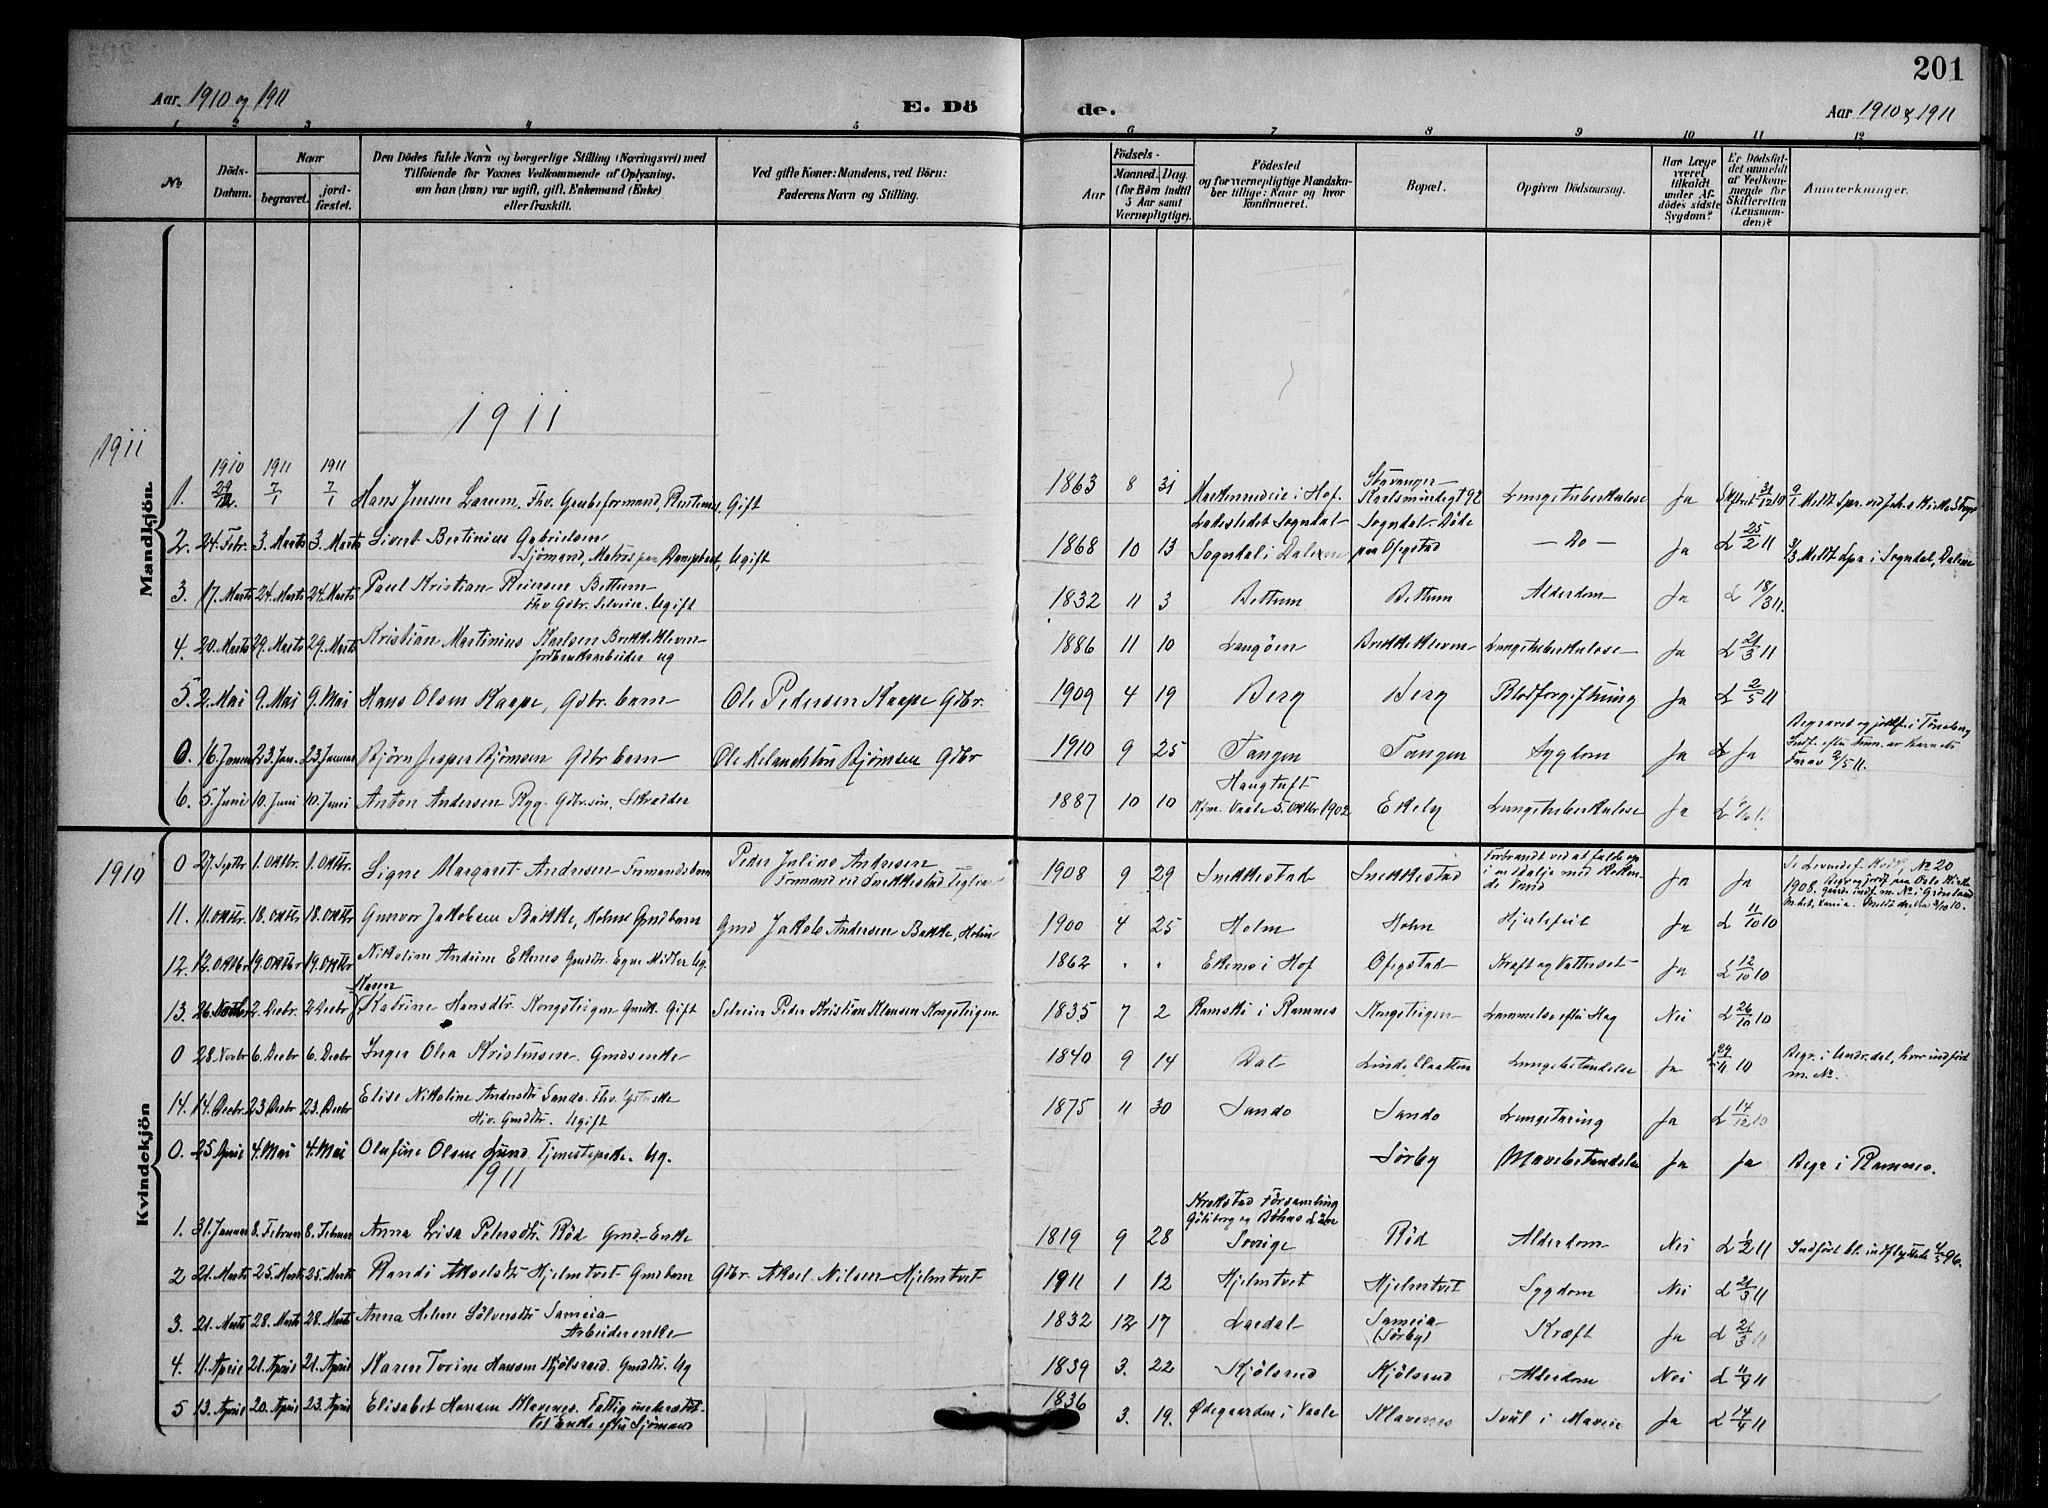 201
Aar 1910 og 1911
E. Dö
de.
Aar 1910 & 1911
1 2 3 4 5 6 7 8 9 10 11 12
No
Döds-
Datum.
Naar
begravet.
jord-
fæstet.
Den Dödes fulde Navn og borgerlige Stilling (Næringsvei) med
Tilföiende for Voxnes Vedkommende af Oplysning,
om han (hun) var ugift, gift, Enkemand (Enke)
eller fraskilt.
Ved gifte Koner: Mandens, ved Börn:
Faderens Navn og Stilling.
Födsels-
Aar
Maaned.
Dag.
(for Börn indtil
5 Aar samt
Værnepligtige).
Födested
og for værnepligtige Mandska-
ber tillige: Naar og hvor
konfirmeret.
Bopæl.
Opgiven Dödsaarsag.
Har Læge
været
tilkaldt
under Af-
dödes sidste
Sygdom?
Er Dödsfal-
det anmeldt
af Vedkom-
mende for
Skifteretten
(Lensman-
den)?
Anmærkninger.
Mandkjön
1911
1911
1910 1911 1911
1. 29/12 7/1 7/1 Hans Jensen Larum. Fhv. Grubeformand, Gift 1863 8 31 i Hof. Stavanger- Lungetuberkulose Ja
2. 24. Febr. 3. Marts 3. Marts Sivert Bertinius Gabrielsen
Sjömand, Matros paa Ugift 1868 10 13 Ladestedet Sogndal- Sogndal i Dalene Sogndal - Döde paa Ofigstad — Do — Ja L 25/2 11 3/3 Meldt Spr i Sogndal, Dalene
3. 17. Marts 24. Marts 24. Marts Paul Kristian Reiersen Bettum
Fhv Gdbr. Selveier. Ugift 1832 11 3 Bettum Bettum Alderdom Ja L 18/3 11.
4. 20. Marts 29. Marts 29. Marts Kristian Martinius Karlsen Brekkekleven
Jordbruksarbeider ug 1886 11 10 Langöen Brekkekleven Lungetuberkulose Ja L 21/3 11
5. 2. Mai 9. Mai 9. Mai Hans Olsen Kaape, Gdbr. barn Ole Pedersen Kaape Gdbr. 1909 4 19 Berg Berg Blodforgiftning Ja L 2/5 11
0. 16. Januar 23 Jan. 23 Januar Bjørn Jesper Bjørnsen Gdbr barn Ole Melanchton Bjørnsen Gdbr 1910 9 25 Tangen Tangen Sygdom Ja Ja Begravet og jordf. i Tönsberg
6. 5. Juni 10. Juni 10. Juni Anton Andersen Ryg. Gdbr.sön, Skrædder 1887 10 10 Haugtuft Kfm. Vaale 5. Oktbr 1902 Ekely Lungetuberkulose Ja
Kvindekjön
1910
0 27. Septbr 1. Oktbr. 1. Oktbr. Signe Margaret Andresen Formandsbarn Peder Julius Andresen
Formand ved Snekkestad Teglv. 1908 9 29 Snekkestad Snekkestad Forbrandt ved at falde op
i en balje med kokende Vand Ja Ja
11. 11. Oktbr. 18. Oktbr. 18. Oktbr. Gunvor Jakobsen Bakke, Holm Gmdbarn Gmd Jakob Andersen Bakke, Holm 1900 4 25 Holm Holm Hjertefeil Ja L 11/10 10
12. 12. Oktbr 19. Oktbr 19. Oktbr Nikoline Andrine Ekenes Gmdtr. Egne Midler Ug. 1862 " " Ekenes i Hof Ofigstad Kræft og Vattersot Ja L 12/10 10
13. 2. Decbr. 2 Decbr Karen Katrine Hansdtr. Kongsteigen Gmdk. Gift Selveier Peder Kristian Klausen Kongsteigen 1835 7 2 Ramski i Ramnes Kongsteigen Lammelse efter Slag Nei L 26/10 10
0 28. Novbr 6. Decbr 6. Decbr Inger Olea Kristensen. Gmdsenke 1840 9 14 Dal Lungebetændelse Ja 29/11 10 Begr. i Undr.dal, hvor indfört m. No.
14. 14. Decbr 23 Decbr 23. Decbr Elise Nikoline Andersdtr Sando. Fhv.
Gmdtr. Ugift 1875 11 30 Sando Sando Lungetæring Ja L 14/12 10
0. 25 April 4. Mai 4. Mai Olufine Olsen Lund Tjenestepike. Ug. Sörby Mavebetændelse Ja Ja Begr i Ramnes.
1911
1. 31. Januar 8. Februar 8. Februar Anna Lisa Petersdtr. Röd Gmd-Enke 1819 9 28 Krokstad Församling
Göteborg og Bohus Län
Sverige Röd Alderdom Nei L 1/2 11 Indfört bl. indflyttede 4/5 96.
2 21. Marts 25. Marts 25. Marts Randi Akselsdtr Hjelmtvet Gmdbarn Gdbr. Aksel Nilsen Hjelmtvet 1911 1 12 Hjelmtvet Hjelmtvet Sygdom Nei L 21/3 11
3. 21. Marts 28. Marts 28. Marts Anna Helene Sölversdtr Sameia
Arbeiderenke 1832 12 17 Laedal Sameia (Sörby) Kræft Ja L 21/3 11
4. 11. April 21. April 21. April Karen Torine Hansen Kjölsrud. Gmdtr. Ug 1839 3. 22 Kjölsrud Kjölsrud Alderdom Nei L 11/4 11
5 13. April 20. April 23. April Elisabet Hansen Klavenes. Fattigunderstöt-
tet Enke efter Sjömand 1836 3. 19. Ödegaarden i Vaale Klavenes Svul i Maven Ja L 14/4 11